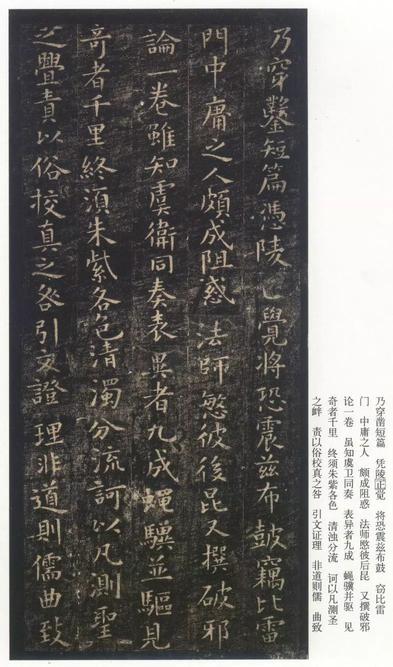 乃穿鑿短篇憑陵覺將恐震茲布鼓竊比雷
門中庸之人頗成阻惑 法師慜彼後昆又撰破邪
論一卷雖知虞衛同奏表異者九成蠅驥並驅見
奇者千里終須朱紫各色清濁分流訶以凡則聖
之舋責以俗挍真之咎引文證理非道則儒曲致
乃穿凿短篇 凭陵正觉 将恐震兹布鼓 窃比雷
门 中庸之人 颇成阻惑 法师愍彼后昆 又撰破邪
论一卷 虽知虞卫同奏 表异者九成 蝇骥并驱 见
奇者千里 终须朱紫各色 清浊分流 诃以凡测圣
之衅 责以俗校真之咎 引文证理 非道则儒 曲致